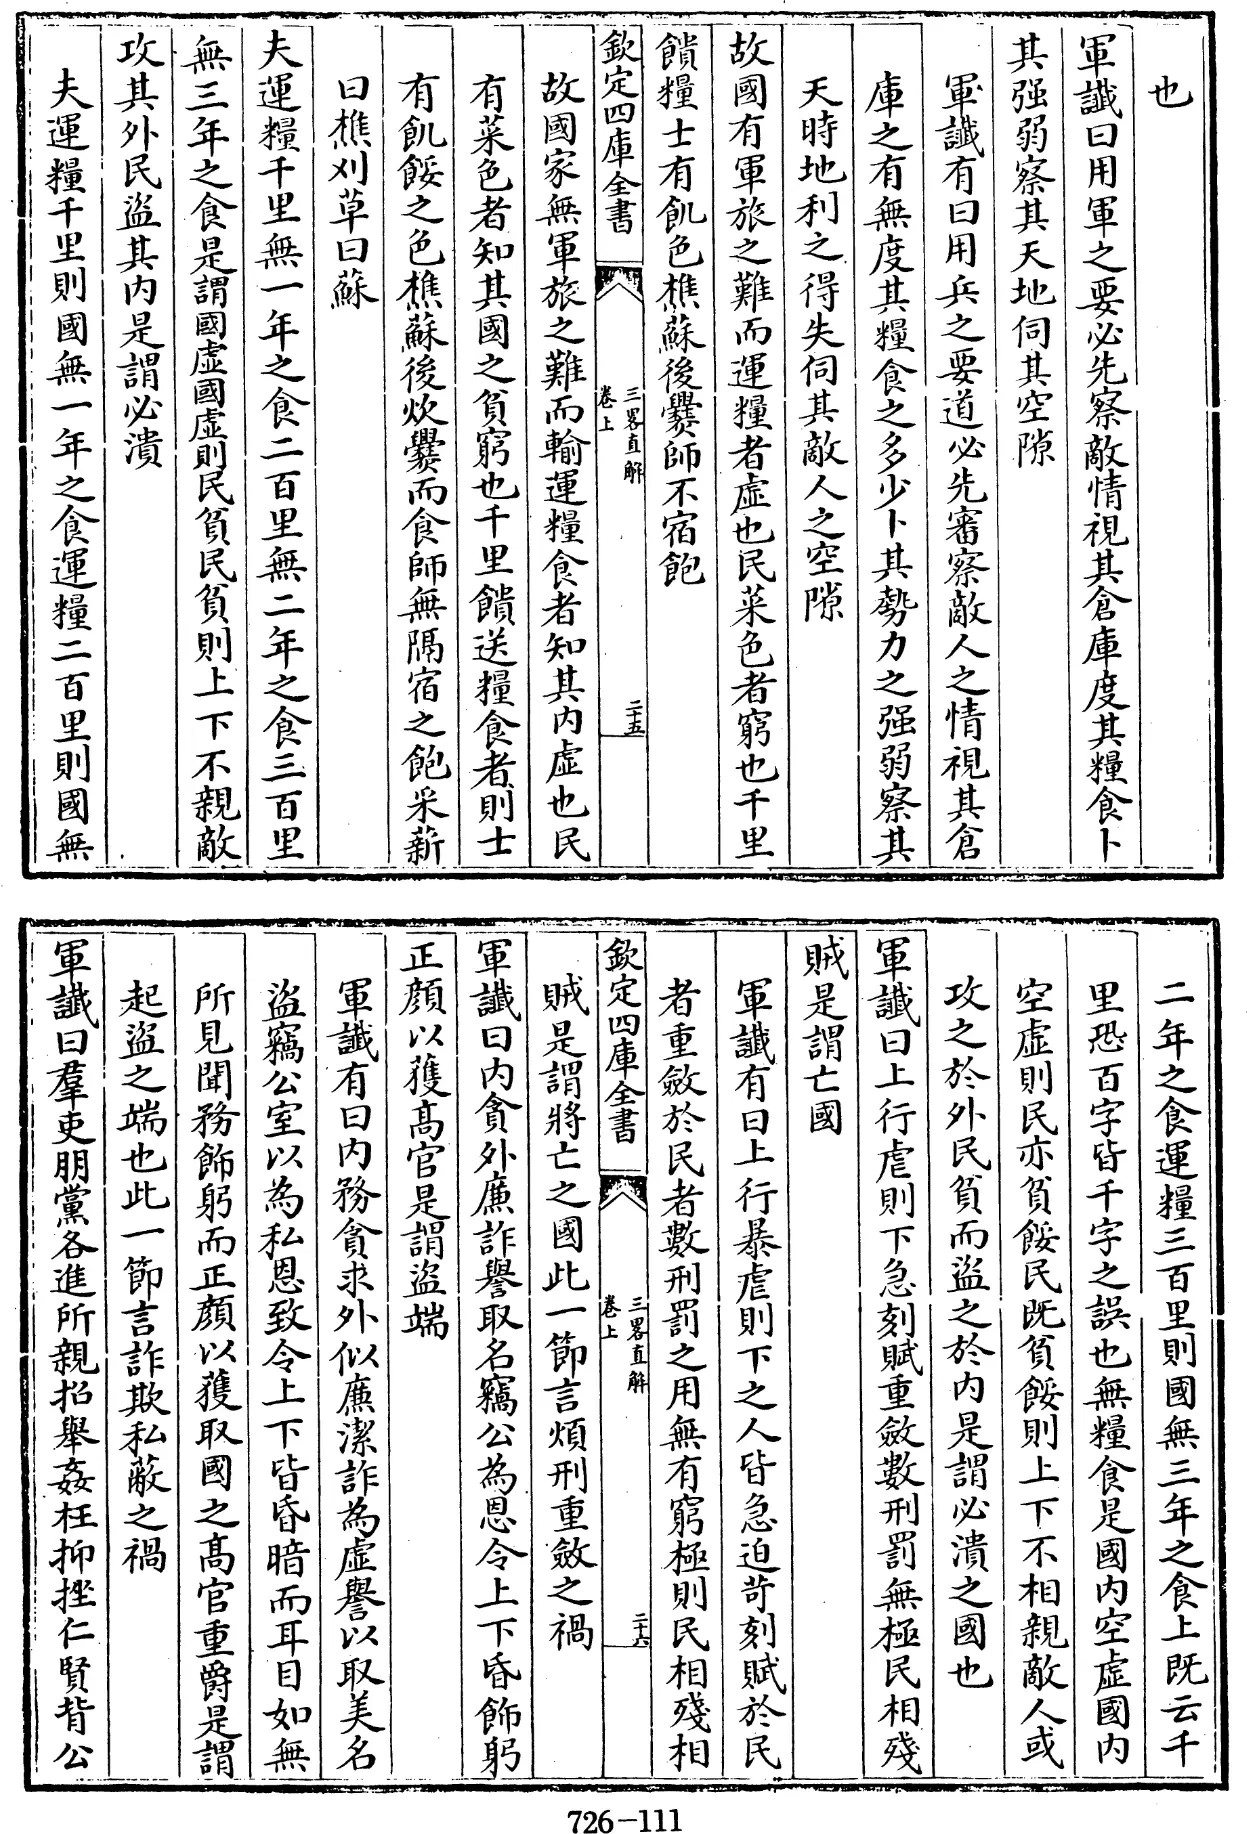 也
軍讖曰用軍之要必先察敵情視其倉庫度其糧食卜
其强弱察其天地伺其空隙
軍讖有曰用兵之要道必先審察敵人之情視其倉
庫之有無度其糧食之多少卜其勢力之强弱察其
天時地利之得失伺其敵人之空隙
故國有軍旅之難而運糧者虛也民菜色者窮也千里
饋糧士有飢色樵蘇後爨師不宿飽
欽定四庫全書
三畧直解
卷上
二十五
故國家無軍旅之難而輸運糧食者知其内虛也民
有菜色者知其國之貧窮也千里饋送糧食者則士
有飢餒之色樵蘇後炊爨而食師無隔宿之飽采薪
曰樵刈草曰蘇
夫運糧千里無一年之食二百里無二年之食三百里
無三年之食是謂國虛國虛則民貧民貧則上下不親敵
攻其外民盜其内是謂必潰
夫運糧千里則國無一年之食運糧二百里則國無
二年之食運糧三百里則國無三年之食上既云千
里恐百字皆千字之誤也無糧食是國内空虛國内
空虛則民亦貧餒民既貧餒則上下不相親敵人或
攻之於外民貧而盜之於内是謂必潰之國也
軍讖曰上行虐則下急刻賦重斂數刑罰無極民相殘
賊是謂亡國
軍讖有曰上行暴虐則下之人皆急迫苛刻賦於民
者重斂於民者數刑罰之用無有窮極則民相殘相
欽定四庫全書
三畧直解
卷上
二十六
賊是謂將亡之國此一節言煩刑重斂之禍
軍讖曰内貪外廉詐譽取名竊公為恩令上下昏飾躬
正顔以獲髙官是謂盜端
軍讖有曰内務貪求外似廉潔詐為虛譽以取美名
盜竊公室以為私恩致令上下皆昏暗而耳目如無
所見聞務飾躬而正顔以獲取國之髙官重爵是謂
起盜之端也此一節言詐欺私蔽之禍
軍讖曰羣吏朋黨各進所親招舉姦枉抑挫仁賢背公
726-111